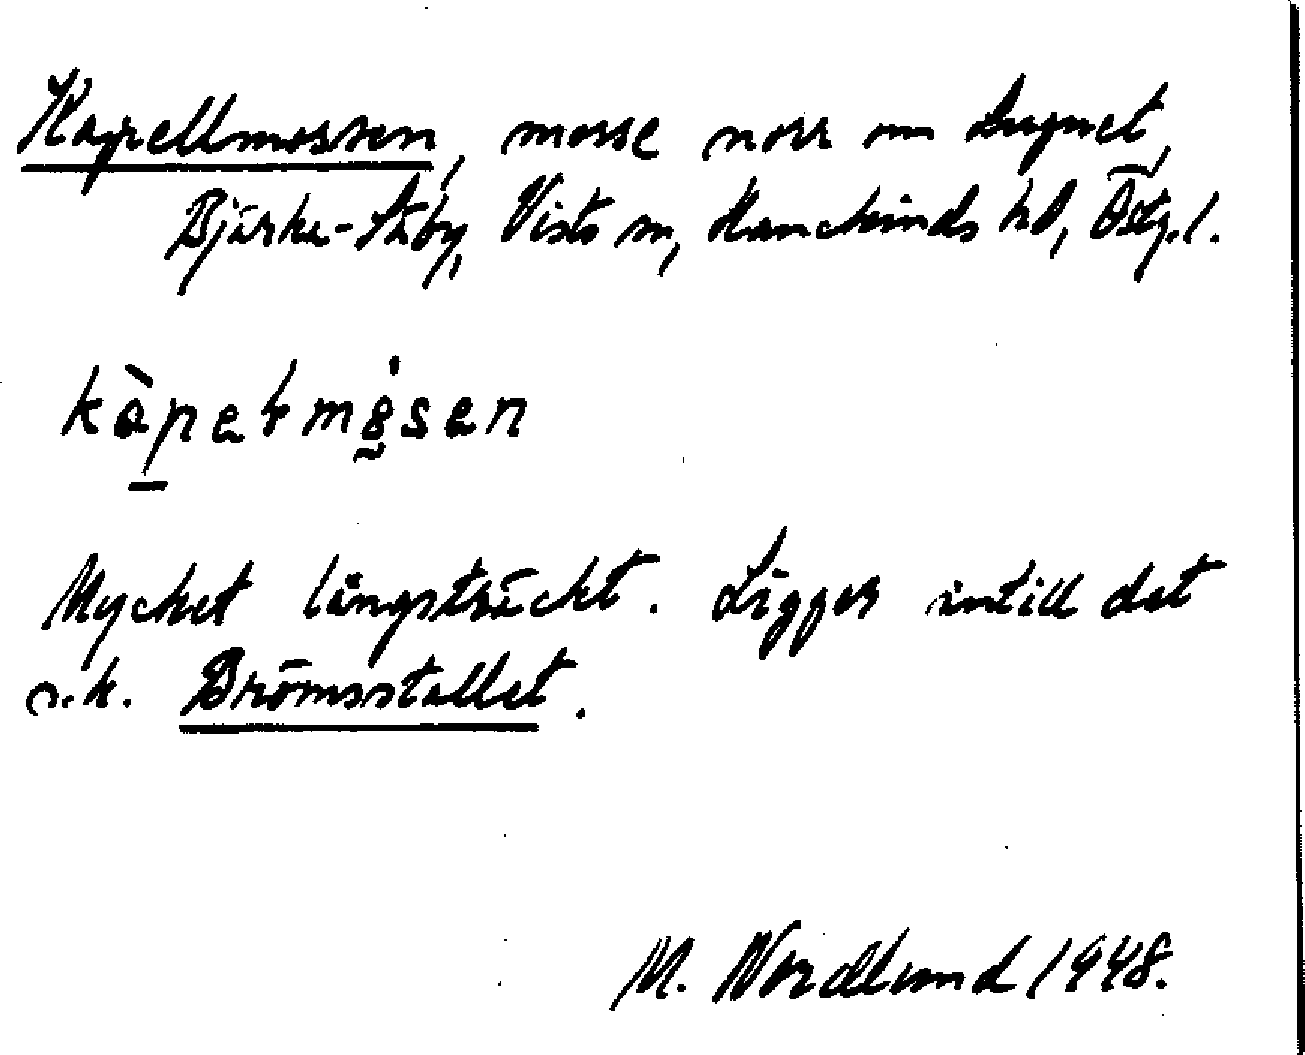 Kapellmossen, mosse norr om Lugnet,
Bjärka-Säby, Vists sn, Hanekinds hd, Östg.l.
kàpelmòsen
Mycket långsträckt. Ligger intill det
s.k. Brömsstallet.
M. Nordlund 1948.